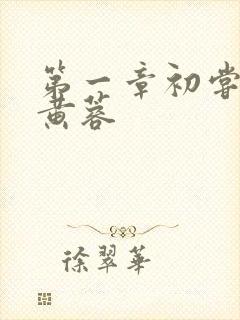 第一章初嘗
黄蓉
徐翠華